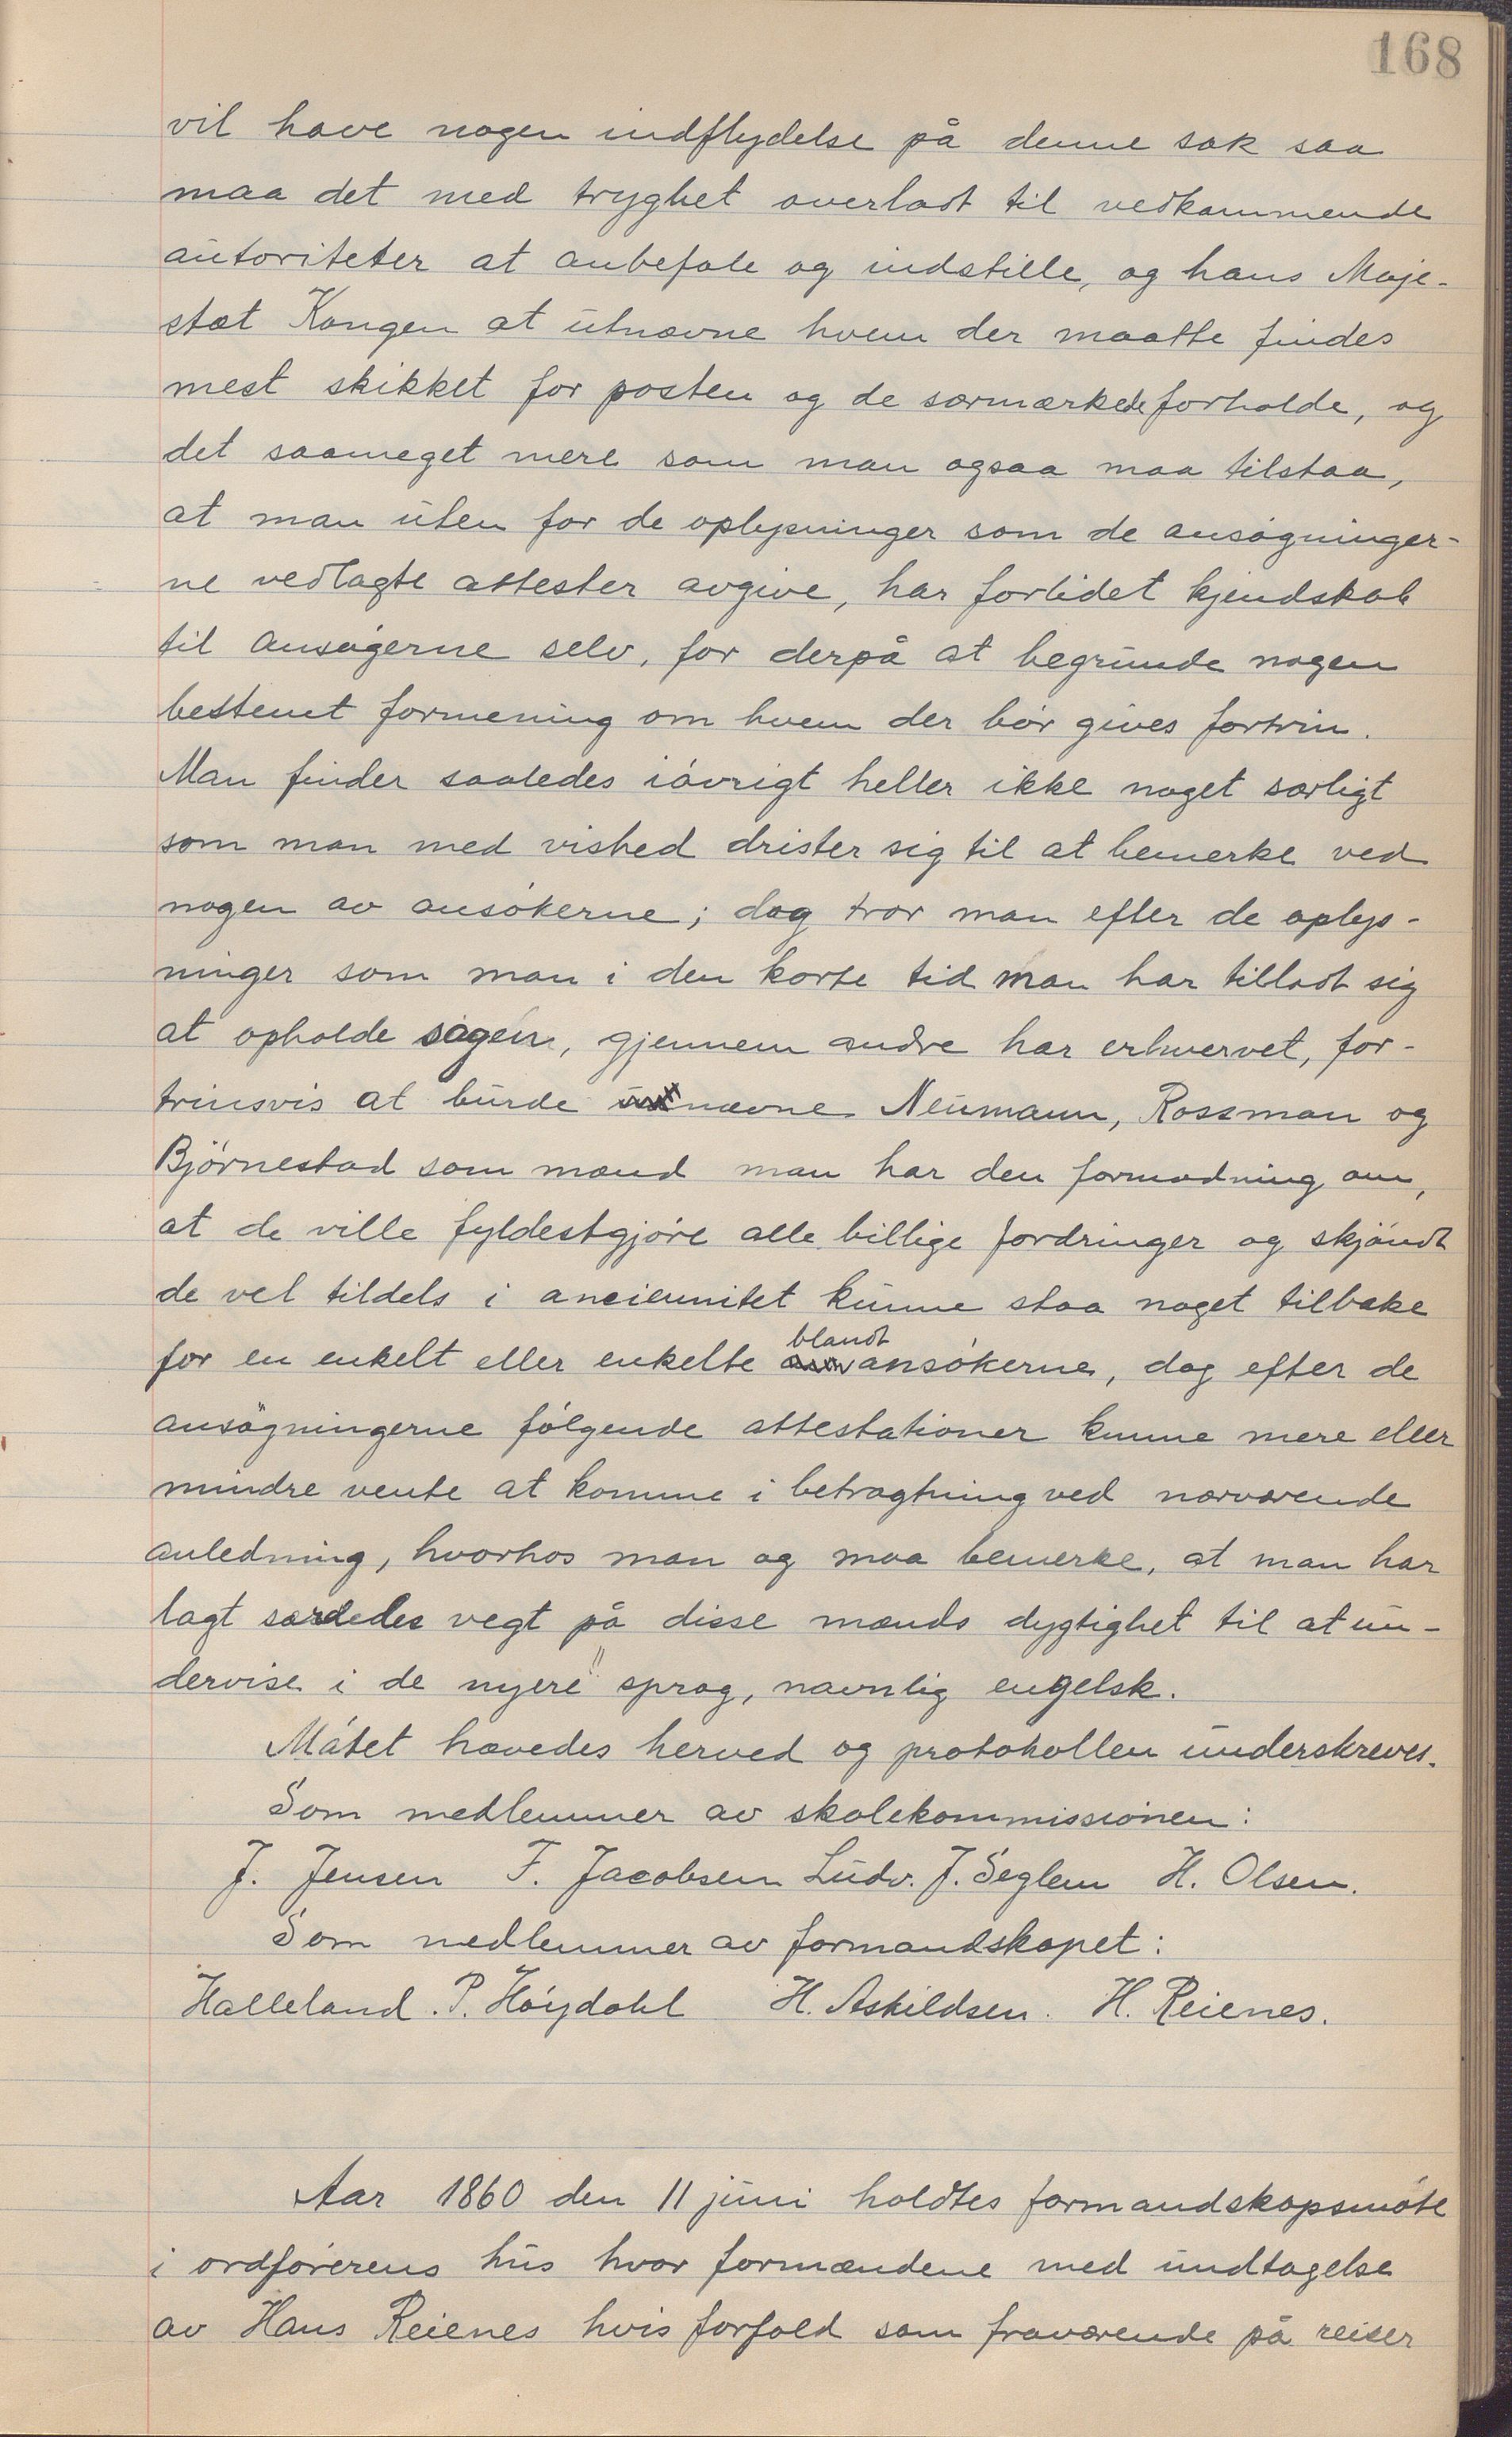 168
vil have nogen indflydelse på denne sak saa
maa det med tryghet overladt til vedkommende
autoriteter at anbefale og indstille, og hans Maje-
stæt Kongen at utnævne hvem der maatte findes
mest skikket for posten og de særmærkede forholde, og
det saameget mere som man ogsaa maa tilstaa,
at man uten for de oplysninger som de ansøgninger-
ne vedlagte attester avgive, har forlidet kjendskab
til ansøgerne selv, for derpå at begrunde nogen
bestemt formening om hvem der bør gives fortrin.
Man finder saaledes iøvrigt heller ikke noget særligt
som man med vished drister sig til at bemerke ved
nogen av ansøkerne; dog tror man efter de oplys-
ninger som man i den korte tid man har tilladt sig
at opholde sagen, gjennem andre har erhvervet, for-
trinsvis at burde nævne Neumann, Rossman og
Bjørnestad som mænd man har den formodning om,
at de ville fyldestgjøre alle billige fordringer og skjøndt
de vel tildels i anciennitet kunne staa noget tilbake
for en enkelt eller enkelte blandt ansøkerne, dog efter de
ansøgningerne følgende attestationer kunne mere eller
mindre vente at komme i betragtning ved nærværende
anledning, hvorhos man og maa bemerke, at man har
lagt særdeles vegt på disse mænds dygtighet til at un-
dervise i de nyere sprog, navnlig engelsk.
Møtet hævedes herved og protokollen underskreves.
Som medlemmer av skolekommissionen:
J. Jensen F. Jacobsen Ludv. J. Seglem H. Olsen.
Som medlemmer av formandskapet:
Halleland. P. Høydahl H. Askildsen. H. Reienes.
Aar 1860 den 11 juni holdtes formandskapsmøte
i ordførerens hus hvor formændene med undtagelse
av Hans Reienes hvis forfald som fraværende på reiser